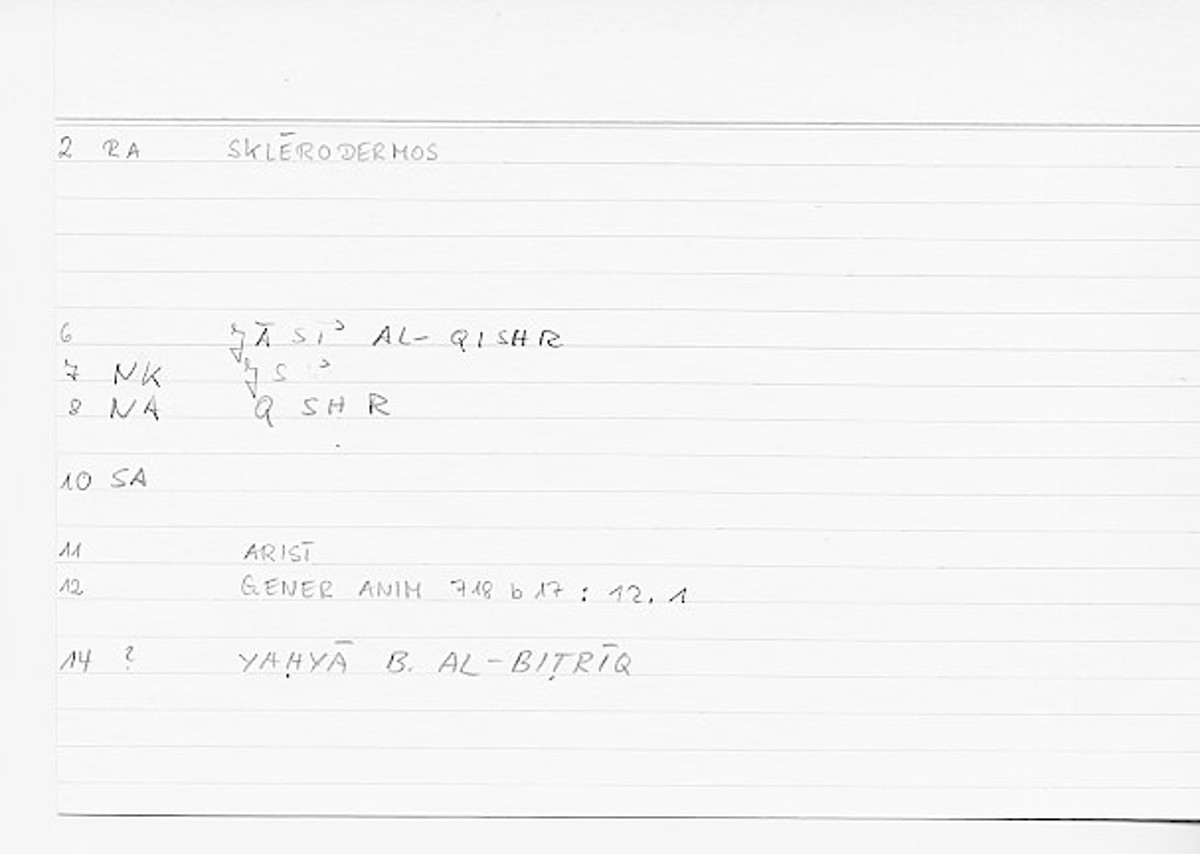 2 RA SKLĒRODERMOS
6 J̌ĀSIʾ AL-QISHR
7 NK J̌ S ʾ
8 NA Q SH R
10 SA
11 ARIST
12 GENER ANIM 718 b 17 : 12. 1
14 ? YAḤYĀ B. AL-BIṬRĪQ